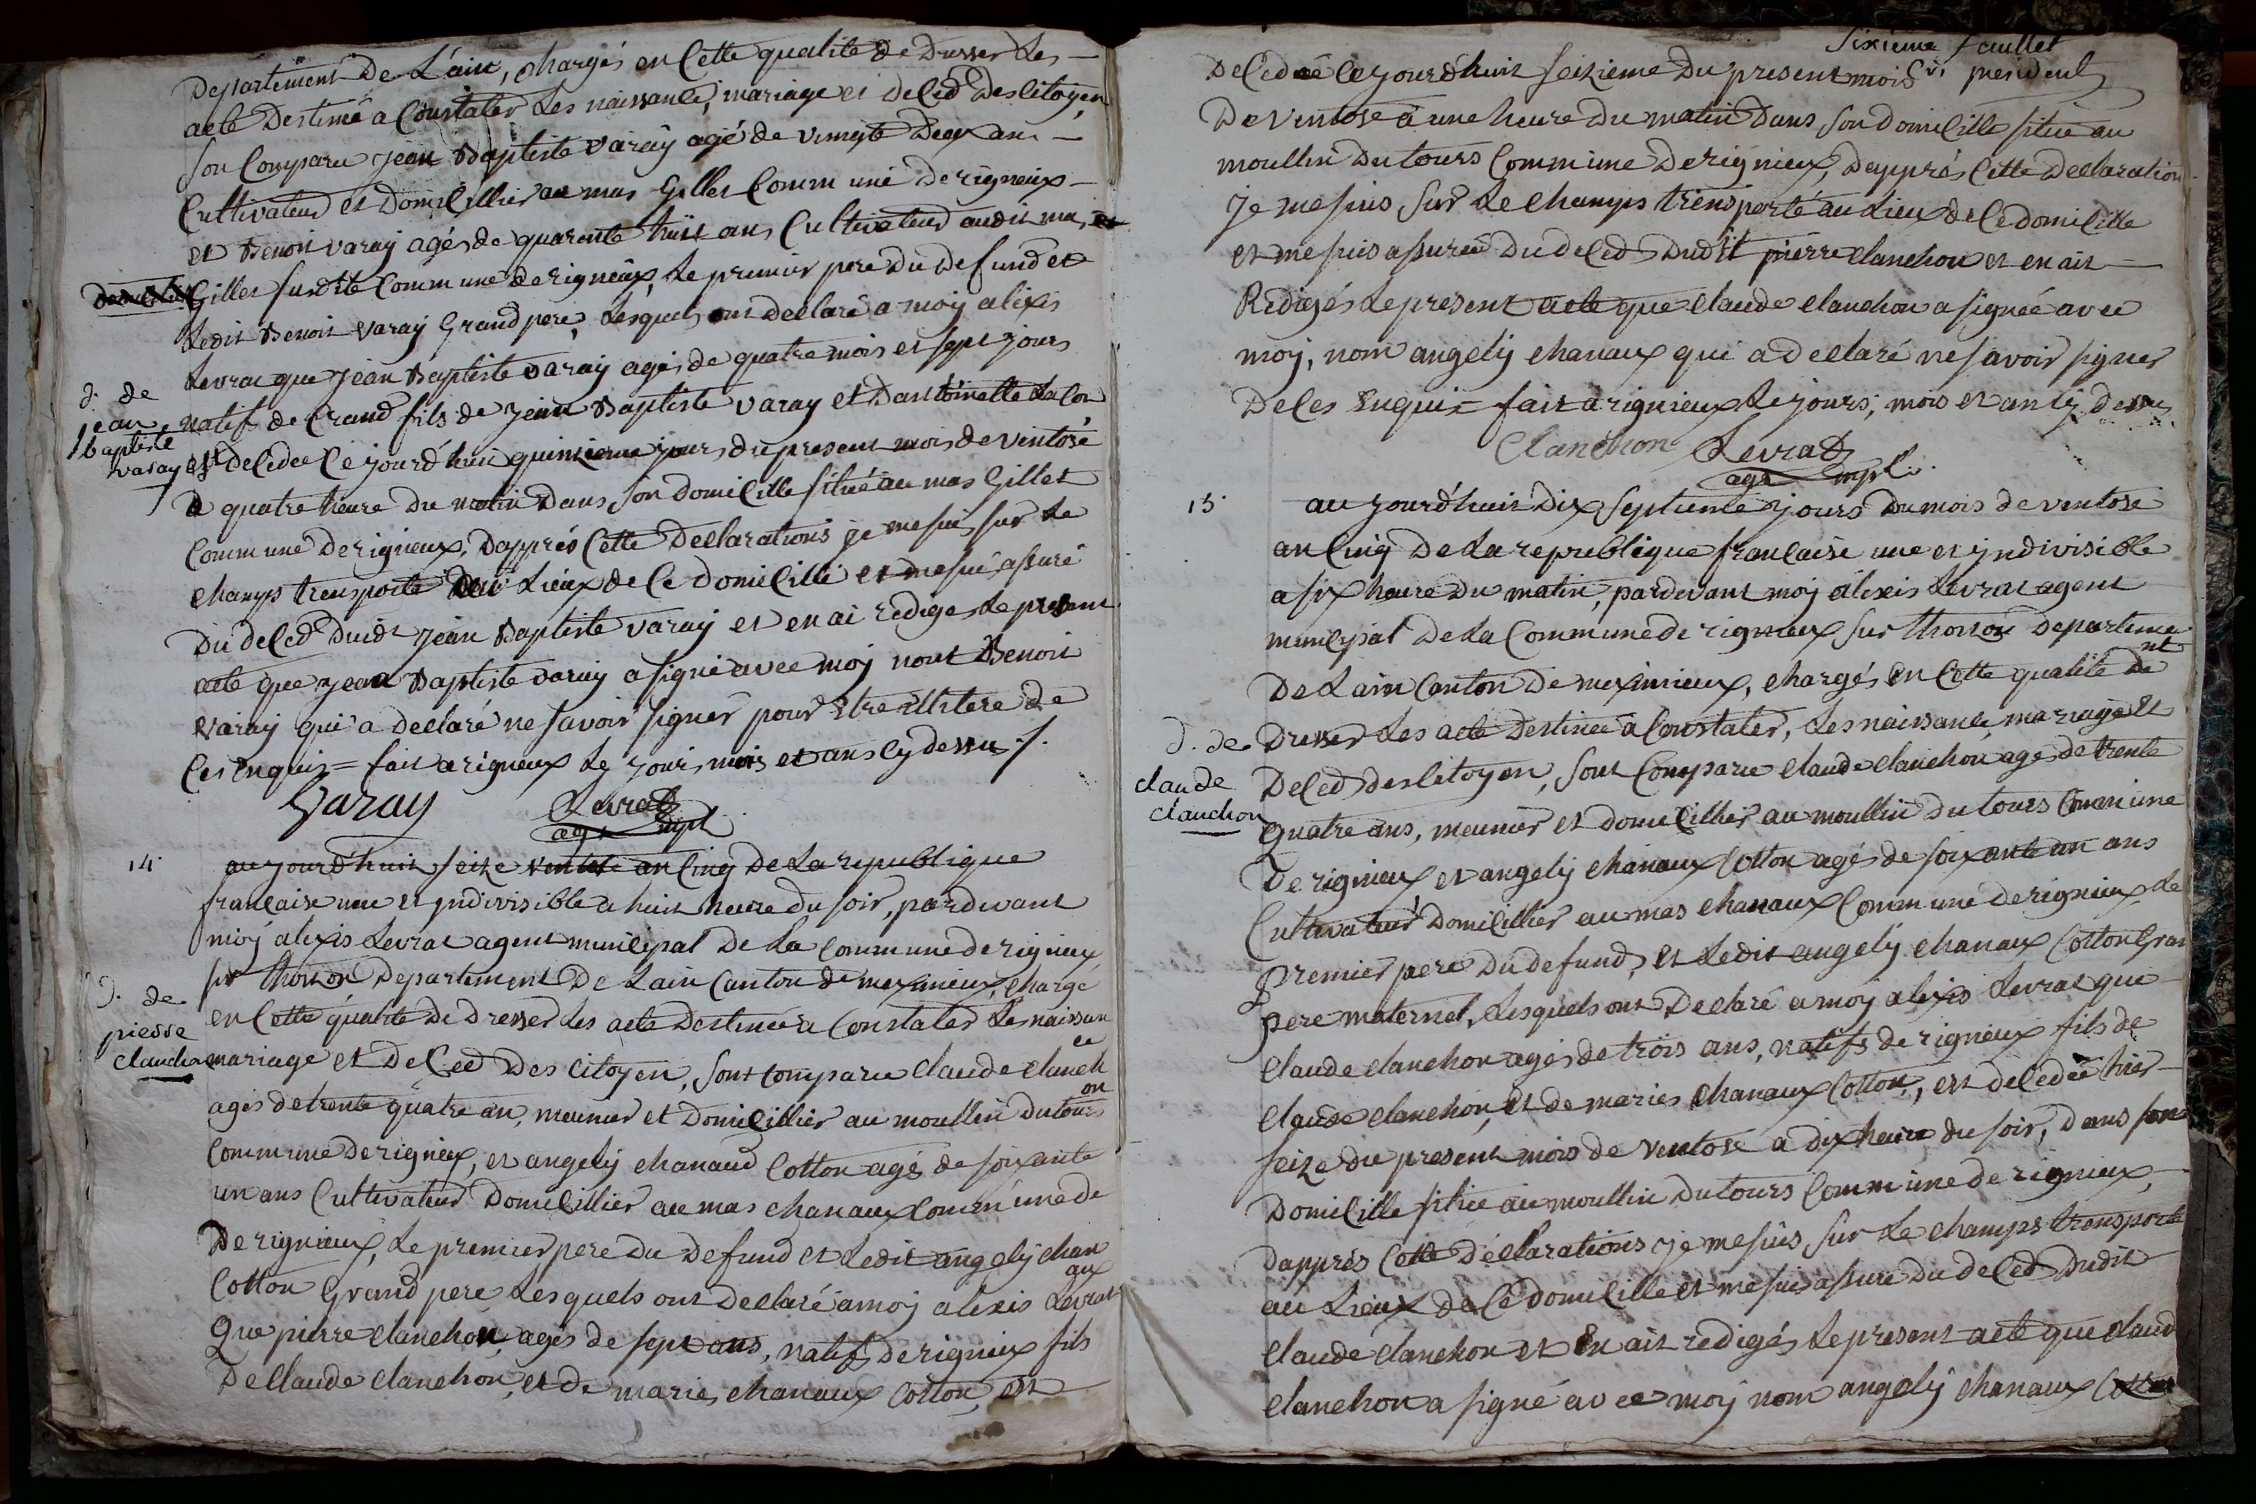 Departement De L'ain, chargés en Cette qualité de Dresser Les
acte Destiné a Constater Les naissance, mariage et deCed DesCitoyen
son Comparu jean Baptiste varay agé de vinngte Deux ans
Cultivateur et DomiCillier au mas Gillet Commune derigneux
et Benoit varay agés de quarente huit ans Cultivateur audit mas
Gillet susdite Commune de rigneux, Le premier pere du defund et
Ledit Benoit varay Grand pere, Lesquels ont declaré a moy alexis
Levrat que jean Baptiste varay agés de quatre mois et sept jours
d. de
jean
baptiste
varay
natif de Crand fils de jean Baptiste varay et Dantoinette LaCon
est deCedee Ce jourd'huis quinzieme jours du present mois de ventose
a quatre heure du matin Dans son domiCille situé au mas Gillet
Commune derigneux, Dapprés Cette Declarations je me suis sur Le
champs trensporté au Lieux de Ce domiCille et mesuis assuré
Du deCed dudit jean Baptiste varay et en ai rediges Le present
acte que jean Baptiste varay a signé avec moy nont Benoit
varay qui a declaré ne savoir signer pour Etre illitere de
Ces Enquis = fait a rigneux Le jours, mois et ans Cy dessus ./.
Varay Levrat
agt mpl
14.
aujourd'huit seize ventose an Cinq De La republique
francaise une et yndivisible a huit heure du soir, pardevant
moy alexis Levrat agent muniCipal De La Commune de rigneux
sur thoison Departement De Lain Canton de meximieux, chargé
d. de
piesse
Clanchon
en Cette qualité De Dresser Les acte Destinée a Constater Les naissan
ce
mariage et DeCed Des Citoyen, sont Comparu Claude Clanch
on
agés detrente quatre an, meunier et DomiCillier au moullin du tours
Commune Derigneux, et angely chanaud Cotton agé de soixante
un ans Cultivateur DomiCillier au mas chanaux Commune de
De rigneux, Le premier pere du Defund et Ledit angely chan
aux
Cotton Grand pere Lesquels ont Declaré amoy alexis Levrat
Que pierre Clanchon agés de sept ans, natifs de rigneux fils
De Claude Clanchon, et de marie chanaux Cotton, est
sixieme feuillet
president
DeCedéé Ce jourd'huit seizieme Du present mois
De ventose a une heure Du matin Dans son domiCille situé au
moullin Du tours Commune De rigneux, Dapprés Cette Declaration
je me suis sur Le champs trensporté au Lieux de Ce domiCille
et me suis assuréé Du deCed Dudit pierre Clanchon et en ait
Redigés Le present acte que Claude Clanchon a signéé avec
moy, nom angely chanaux qui a declaré ne savoir signer
De Ces Enquis = fait a rigneux Le jours, mois et an Cy dessus
Clanchon Levrat
agt mpl.
15.
aujourd'huit Dix septieme jours Du mois de ventose
an Cinq De La republique francaise une et yndivisible
a six heure Du matin, pardevant moy alexis Levrat agent
muniCipal De La Commune de rigneux sur thoison Departeme
nt
De Lain Canton De meximieux, chargés En Cette qualité De
d. de
Claude
Clanchon
Dresser Les acte Destinee a Constater, Les naissance, mariage Et
DeCed des Citoyen, sont Comparu Claude Clanchon agés de trente
quatre ans, meunier et domiCillier au moullin du tours Commune
De rigneux et angely chanaux Cotton agés de soixante un ans
Cultivateur DomiCillier au mas chanaux Commune derigneux, Le
Premier pere Du defund, et Ledit angely chanaux Cotton Gran
pere maternel, Lesquels ont Declaré a moy alexis Levrat que
Claude Clanchon agés de trois ans, natifs de rigneux fils de
Claude Clanchon, et de maries chanaux Cotton, est deCedéé hier
seize du present mois de ventose a dix heure du soir, dans son
DomiCille situé au moullin Du tours Commune De rigneux,
Dapprés Cette Déclarations je me suis sur Le champs transporté
au Lieux de Ce domiCille et me suis assuré du deCed Dudit
Claude Clanchon et En ait redigés Le present acte que Claud
Clanchon a signé avec moy nom angely chanaux Cotton